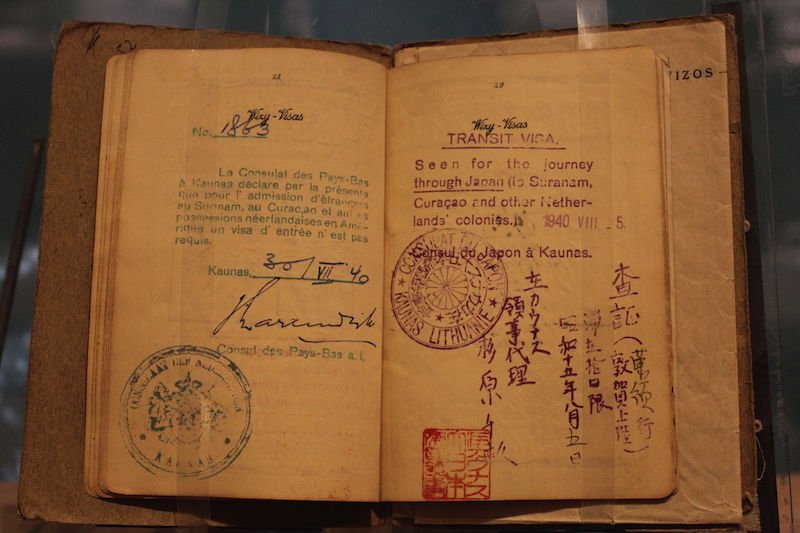 28
Wizy-Visas
No. 1863
Le Consulat des Pays-Bas
à Kaunas déclare par la présente
que pour l' admission d'étrangers
au Surinam, au Curaçao et autres
possessions néerlandaises en Amé-
rique un visa d' entrée n' est pas
requis.
Kaunas, 30/VII 40
Consul des Pays-Bas a.i.
KAUNAS
29
Wizy-Visas
TRANSIT VISA.
Seen for the journey
through Japan (to Suranam,
Curaçao and other Nether-
lands' colonies.)
1940 VIII -5
Consul du Japon à Kaunas.
CONSULAT DU JAPON
KAUNAS LITHUANIE
査証
(敦賀上陸)
昭和十五年八月五日
在カウナス
領事代理
杉原
VIZOS